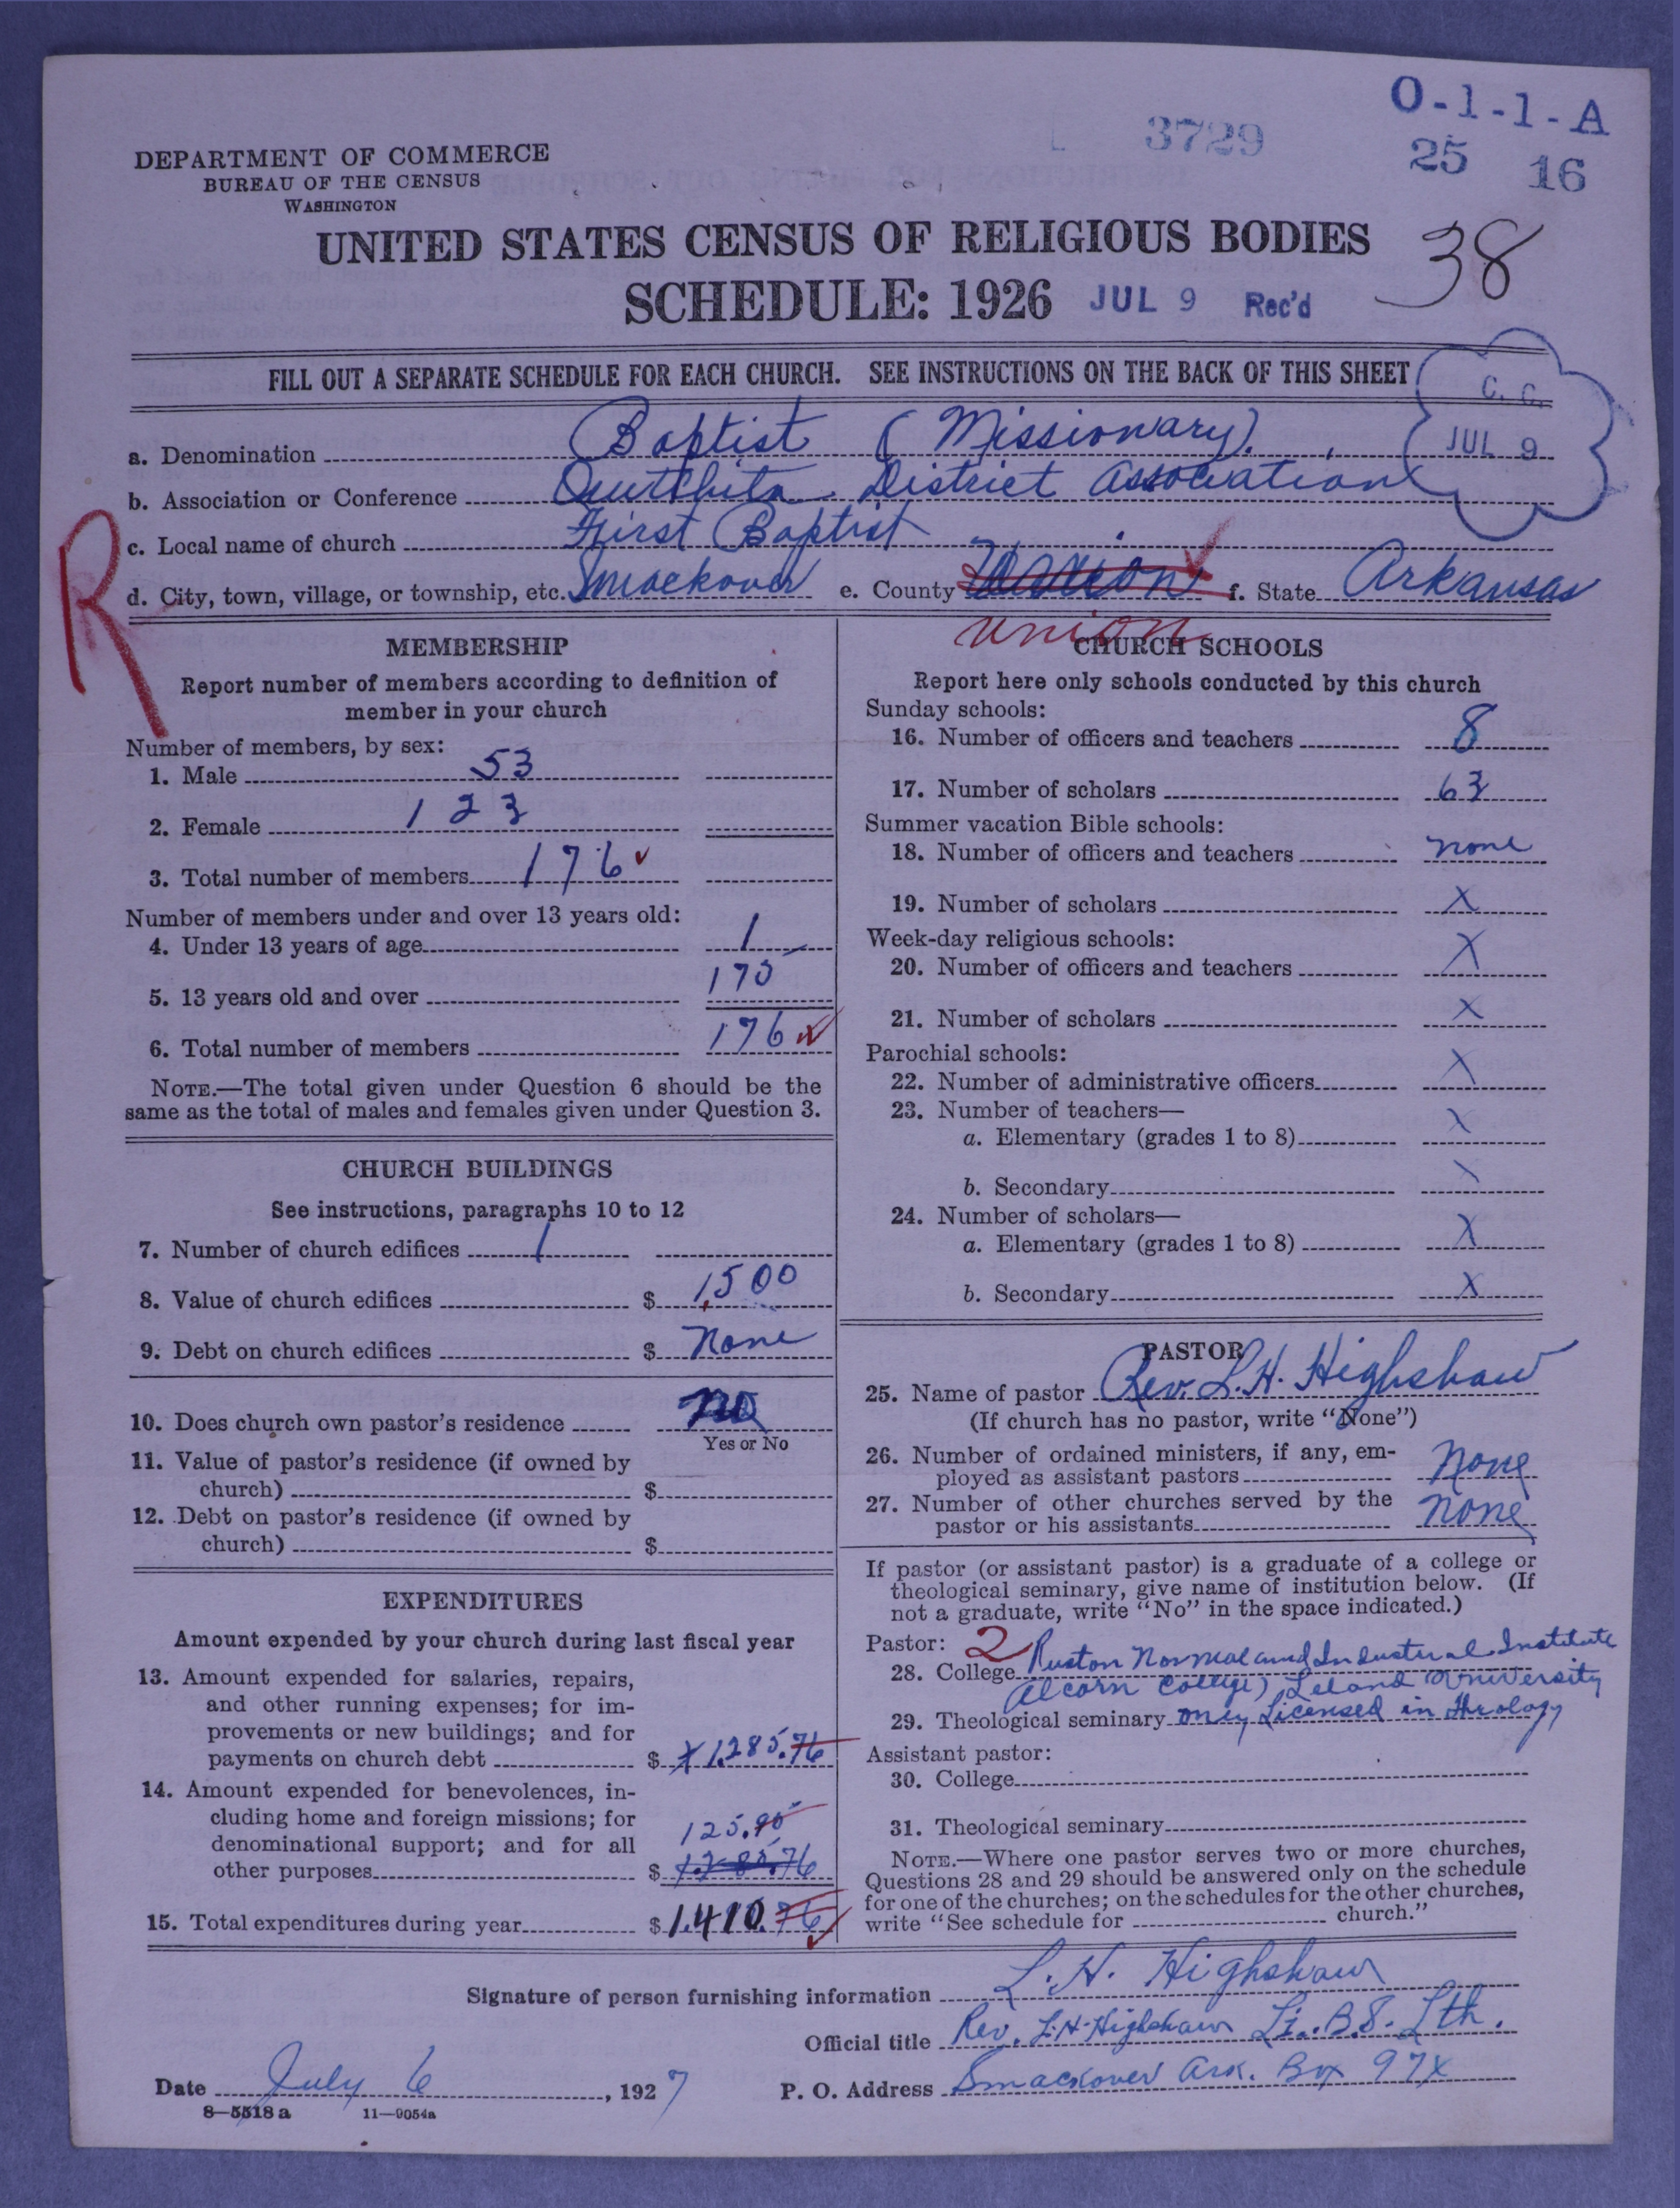 O-1-1-A
3729
25 16
DEPARTMENT OF COMMERCE
BUREAU OF THE CENSUS
WASHINGTON
UNITED STATES CENSUS OF RELIGIOUS BODIES
38
SCHEDULE: 1926 JUL 9 Rec'd
FILL OUT A SEPARATE SCHEDULE FOR EACH CHURCH. SEE INSTRUCTIONS ON THE BACK OF THIS SHEET
C. C.
JUL 9
a. Denomination Baptist (Missionary)
b. Association or Conference District Association
c. Local name of church First Baptist
R
d. City, town, village, or township, etc. Smackover e. County f. State Arkansas
Union
MEMBERSHIP
Report number of members according to definition of
member in your church
Number of members, by sex:
1. Male 53
2. Female 123
3. Total number of members 176
Number of members under and over 13 years old:
4. Under 13 years of age 1
5. 13 years old and over 175
6. Total number of members 176
NOTE.—The total given under Question 6 should be the
same as the total of males and females given under Question 3.
CHURCH BUILDINGS
See instructions, paragraphs 10 to 12
7. Number of church edifices 1
8. Value of church edifices $ 1,500
9. Debt on church edifices $ None
10. Does church own pastor's residence no
Yes or No
11. Value of pastor's residence (if owned by
church) $
12. Debt on pastor's residence (if owned by
church) $
EXPENDITURES
Amount expended by your church during last fiscal year
13. Amount expended for salaries, repairs,
and other running expenses; for im-
provements or new buildings; and for
payments on church debt $ 1,285.76
14. Amount expended for benevolences, in-
cluding home and foreign missions; for
denominational support; and for all
125.90
other purposes $ 1,285.76
15. Total expenditures during year $ 1,410.76
CHURCH SCHOOLS
Report here only schools conducted by this church
Sunday schools:
16. Number of officers and teachers 8
17. Number of scholars 63
Summer vacation Bible schools:
18. Number of officers and teachers none
19. Number of scholars X
Week-day religious schools:
20. Number of officers and teachers X
21. Number of scholars X
Parochial schools:
22. Number of administrative officers X
23. Number of teachers—
a. Elementary (grades 1 to 8) X
b. Secondary X
24. Number of scholars—
a. Elementary (grades 1 to 8) X
b. Secondary X
PASTOR
25. Name of pastor Rev. L.H. Highshaw
(If church has no pastor, write "None")
26. Number of ordained ministers, if any, em-
ployed as assistant pastors None
27. Number of other churches served by the
pastor or his assistants None
If pastor (or assistant pastor) is a graduate of a college or
theological seminary, give name of institution below. (If
not a graduate, write "No" in the space indicated.)
Pastor: 2
28. College Ruston Normal and Industrial Institute
(Alcorn College) Leland University
29. Theological seminary only Licensed in theology
Assistant pastor:
30. College
31. Theological seminary
NOTE.—Where one pastor serves two or more churches,
Questions 28 and 29 should be answered only on the schedule
for one of the churches; on the schedules for the other churches,
write "See schedule for church."
Signature of person furnishing information L. H. Highshaw
Official title Rev. L.H. Highshaw Li. B.S. Lth.
Date July 6, 1927 P. O. Address Smackover Ark. Box 97X
8—5518 a 11—9054a